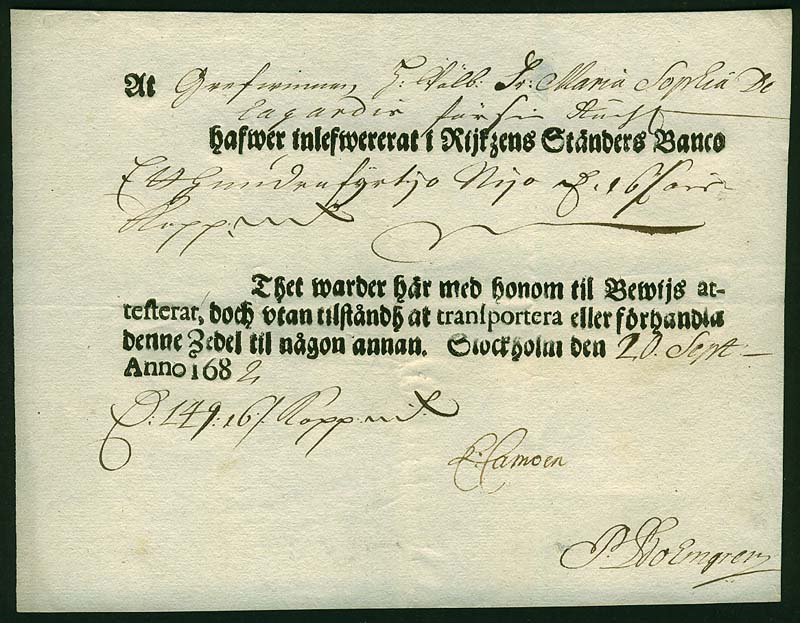 At Grefwinnan H: Wälb: Fr: Maria Sophia De
Lagardie
hafwer inlefwererat i Rijkzens Ständers Banco
Ett Hundra fyrtijo Nijo D. 16/
Kopp: mt
Thet warder här med honom til Bewijs at-
testerat, doch vtan tilståndh at transportera eller förhandla
denne Zedel til någon annan. Stockholm den 20. Sept:
Anno 1682
D: 149: 16:/ Kopp: mt
P: Holmgren